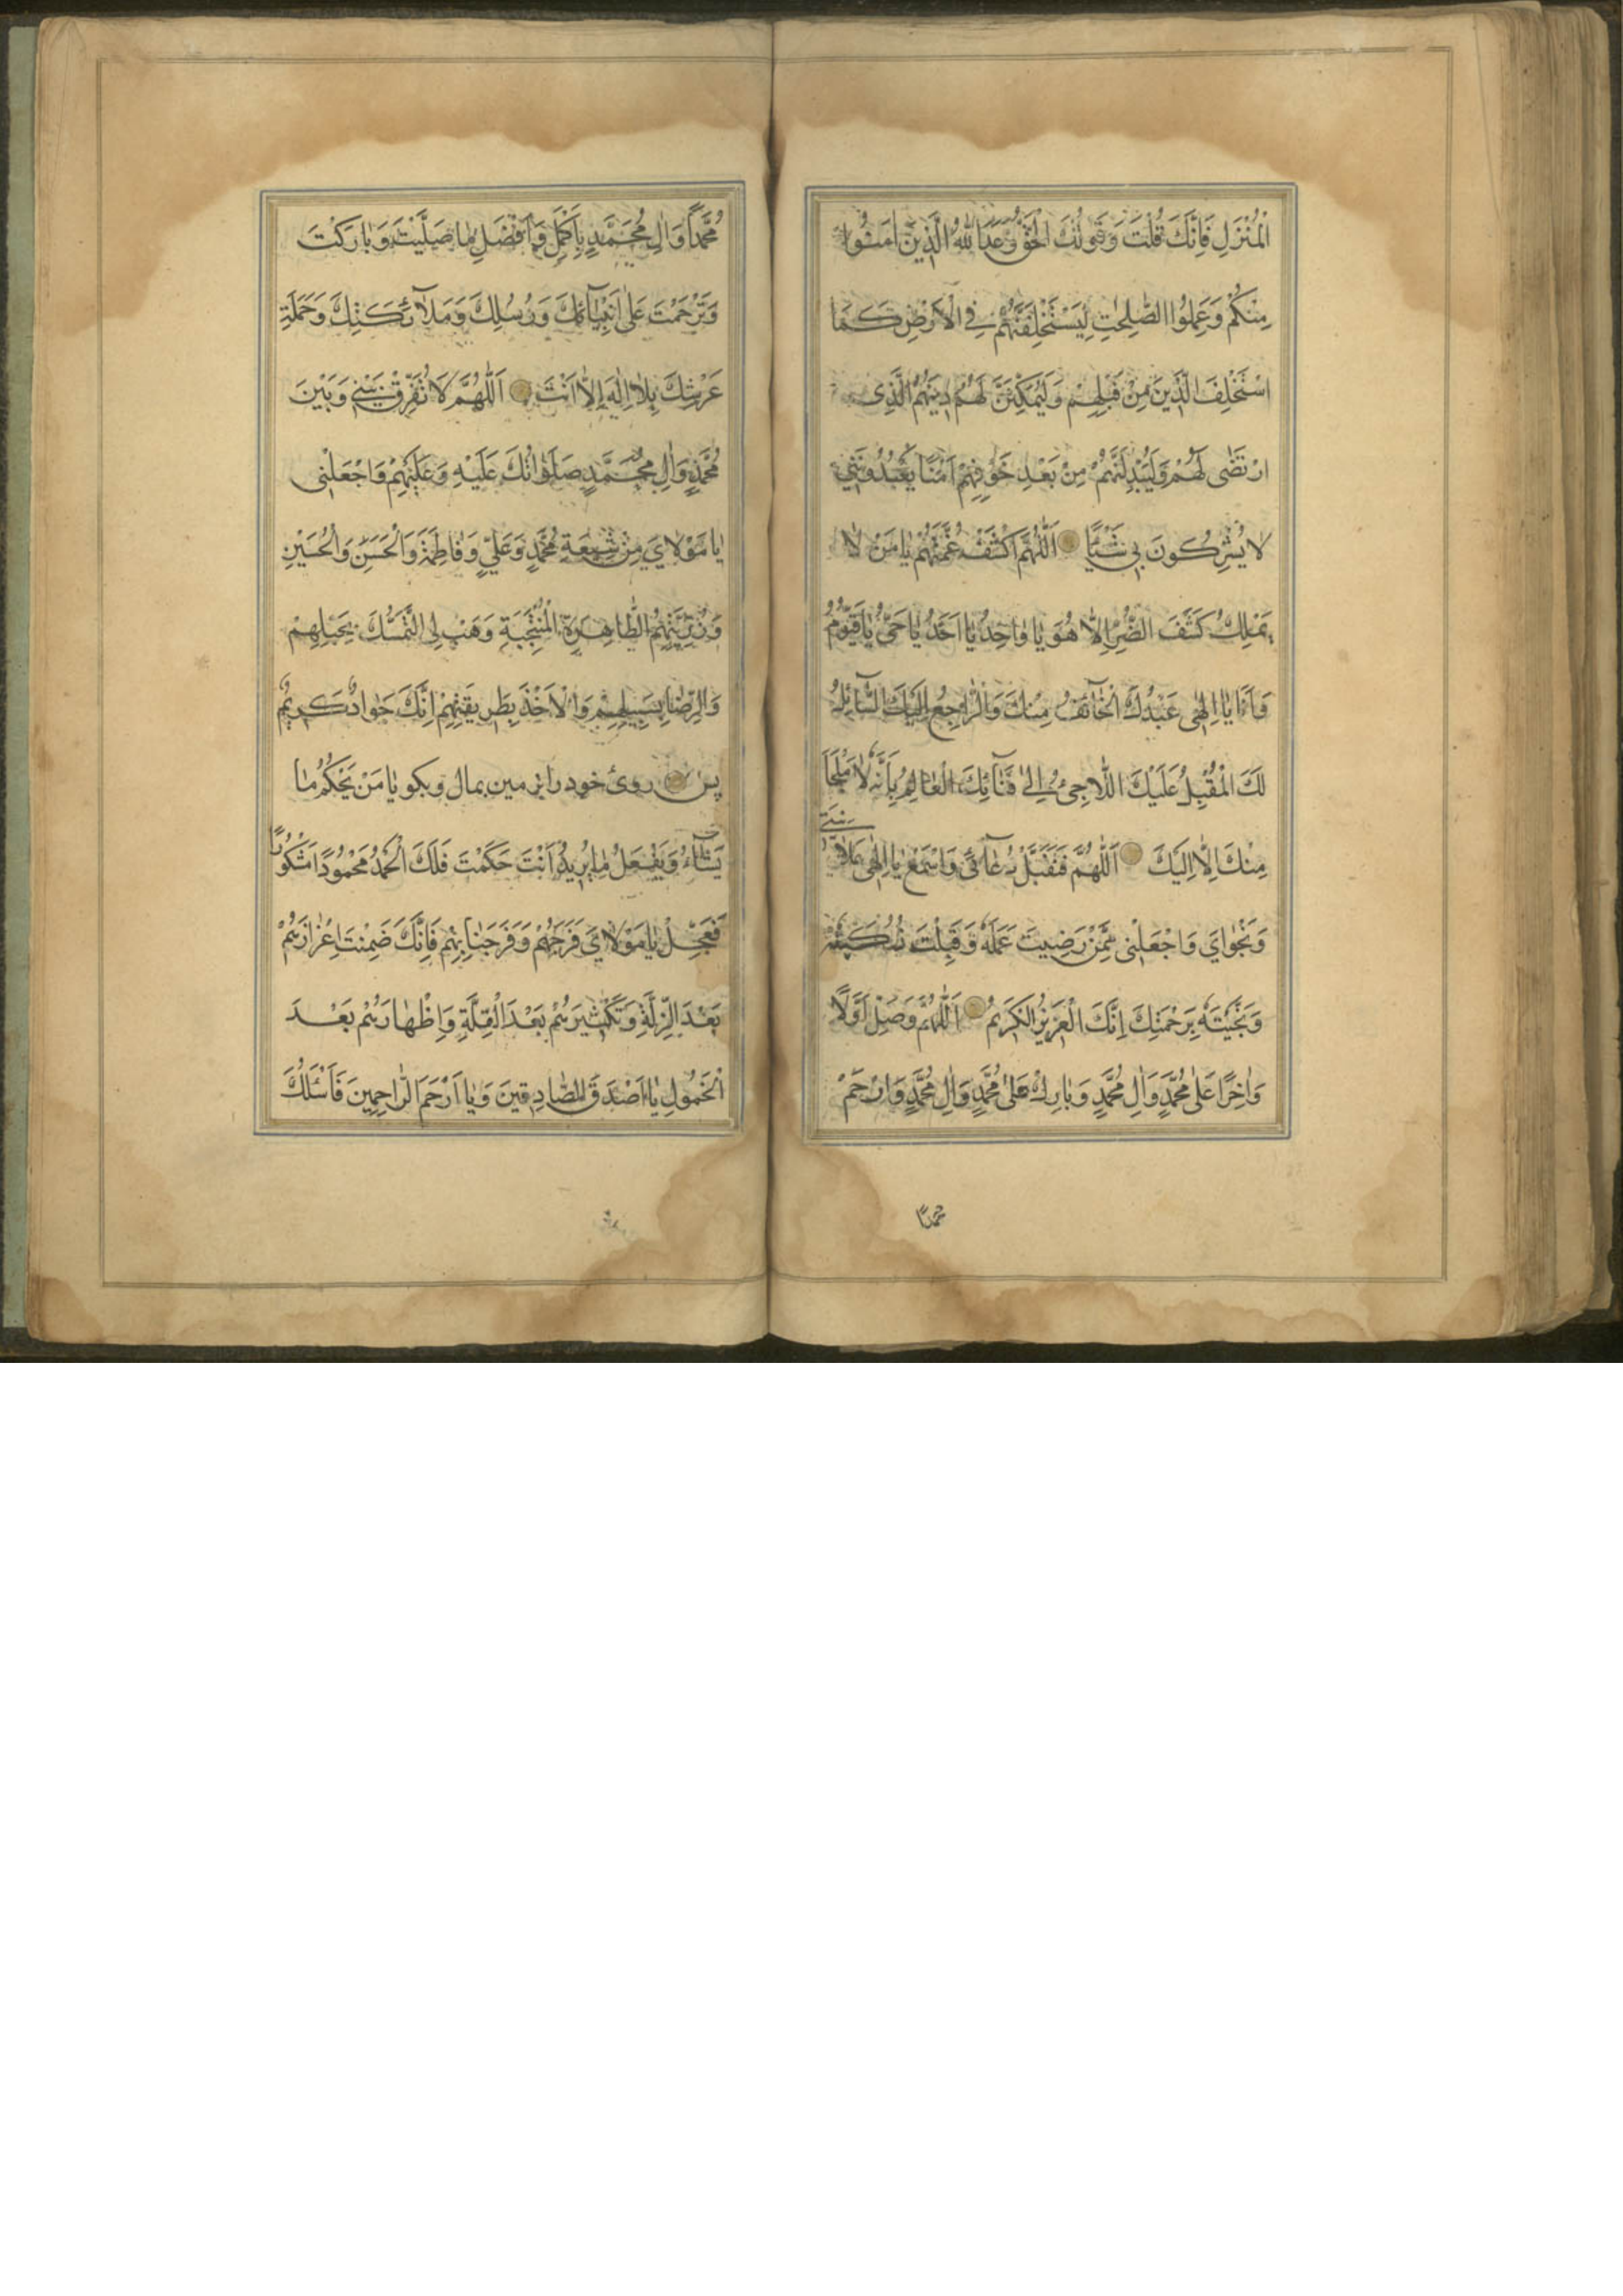 الْمُنْزَلِ فَاِنَّكَ قُلْتَ وَقَوْلُكَ الْحَقُّ وَعَدَ اللّٰهُ الَّذِينَ اٰمَنُوا
مِنْكُمْ وَعَمِلُوا الصّٰلِحٰتِ لَيَسْتَخْلِفَنَّهُمْ فِي الْاَرْضِ كَمَا
اسْتَخْلَفَ الَّذِينَ مِنْ قَبْلِهِمْ وَلَيُمَكِّنَنَّ لَهُمْ دِينَهُمُ الَّذِى
ارْتَضٰى لَهُمْ وَلَيُبَدِّلَنَّهُمْ مِنْ بَعْدِ خَوْفِهِمْ اَمْنًا يَعْبُدُونَنِي
لَا يُشْرِكُونَ بِي شَيْئًا اَللّٰهُمَّ اكْشِفْ غُمَّتَهُمْ يَا مَنْ لَا
يَمْلِكُ كَشْفَ الضُّرِّ اِلَّا هُوَ يَا وَاحِدُ يَا اَحَدُ يَا حَيُّ يَا قَيُّومُ
وَاَنَا يَا اِلٰهِى عَبْدُكَ الْخَآئِفُ مِنْكَ وَالرَّاجِعُ اِلَيْكَ السَّآئِلُ
لَكَ الْمُقْبِلُ عَلَيْكَ اللَّاجِئُ اِلٰى فِنَآئِكَ الْعَالِمُ بِاَنَّهُ لَا مَلْجَاَ
مِنْكَ اِلَّا اِلَيْكَ اَللّٰهُمَّ فَتَقَبَّلْ دُعَآئِى وَاسْمَعْ يَا اِلٰهِى عَلَانِيَتِي
وَنَجْوَايَ وَاجْعَلْنِى مِمَّنْ رَضِيتَ عَمَلَهُ وَقَبِلْتَ نُسُكَهُ
وَنَجَّيْتَهُ بِرَحْمَتِكَ اِنَّكَ الْعَزِيزُ الْكَرِيمُ اَللّٰهُمَّ وَصَلِّ اَوَّلًا
وَاٰخِرًا عَلٰى مُحَمَّدٍ وَاٰلِ مُحَمَّدٍ وَبَارِكْ عَلٰى مُحَمَّدٍ وَاٰلِ مُحَمَّدٍ وَارْحَمْ
محمدًا
مُحَمَّدًا وَاٰلَ مُحَمَّدٍ بِاَكْمَلِ وَاَفْضَلِ مَا صَلَّيْتَ وَبَارَكْتَ
وَتَرَحَّمْتَ عَلٰى اَنْبِيَآئِكَ وَرُسُلِكَ وَمَلَآئِكَتِكَ وَحَمَلَةِ
عَرْشِكَ بِلَا اِلٰهَ اِلَّا اَنْتَ اَللّٰهُمَّ لَا تُفَرِّقْ بَيْنِي وَبَيْنَ
مُحَمَّدٍ وَاٰلِ مُحَمَّدٍ صَلَوَاتُكَ عَلَيْهِ وَعَلَيْهِمْ وَاجْعَلْنِى
يَا مَوْلَايَ مِنْ شِيعَةِ مُحَمَّدٍ وَعَلِيٍّ وَفَاطِمَةَ وَالْحَسَنِ وَالْحُسَيْنِ
وَذُرِّيَّتِهِمُ الطَّاهِرَةِ الْمُنْتَجَبَةِ وَهَبْ لِى التَّمَسُّكَ بِحَبْلِهِمْ
وَالرِّضَا بِسَبِيلِهِمْ وَالْاَخْذَ بِطَرِيقَتِهِمْ اِنَّكَ جَوَادٌ كَرِيمٌ
پس روى خود را بزمين بمال و بكو يَا مَنْ يَحْكُمُ مَا
يَشَآءُ وَيَفْعَلُ مَا يُرِيدُ اَنْتَ حَكَمْتَ فَلَكَ الْحَمْدُ مَحْمُودًا مَشْكُورًا
فَعَجِّلْ يَا مَوْلَايَ فَرَجَهُمْ وَفَرَجَنَا بِهِمْ فَاِنَّكَ ضَمِنْتَ اِعْزَازَهُمْ
بَعْدَ الذِّلَّةِ وَتَكْثِيرَهُمْ بَعْدَ الْقِلَّةِ وَاِظْهَارَهُمْ بَعْدَ
الْخُمُولِ يَا اَصْدَقَ الصَّادِقِينَ وَيَا اَرْحَمَ الرَّاحِمِينَ فَاَسْئَلُكَ